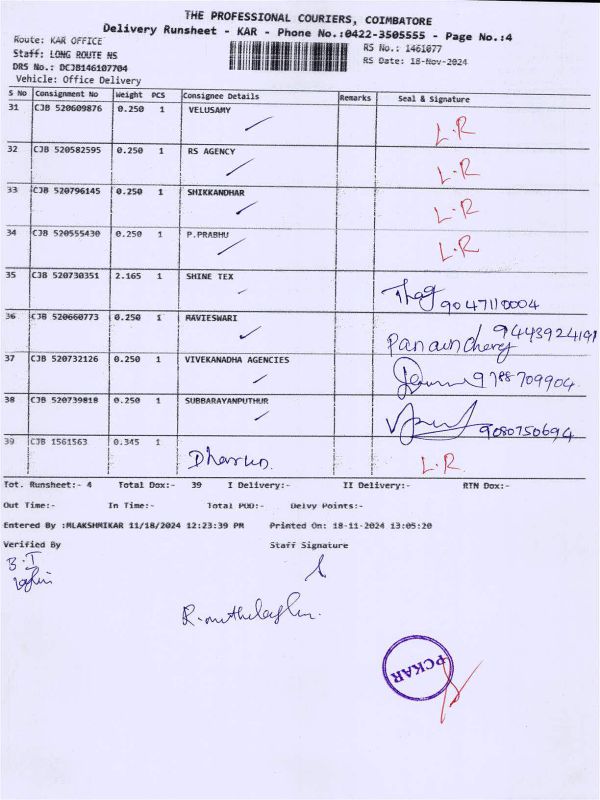 THE PROFESSIONAL COURIERS, COIMBATORE
Delivery Runsheet - KAR - Phone No.:0422-3505555 - Page No.:4
Route: KAR OFFICE
RS No.: 1461077
Staff: LONG ROUTE NS
RS Date: 18-Nov-2024
DRS No.: DCJB146107704
Vehicle: Office Delivery
S No Consignment No Weight PCS Consignee Details Remarks Seal & Signature
31 CJB 520609876 0.250 1 VELUSAMY L.R
32 CJB 520582595 0.250 1 RS AGENCY L.R
33 CJB 520796145 0.250 1 SHIKKANDHAR L.R
34 CJB 520555430 0.250 1 P.PRABHU L.R
35 CJB 520730351 2.165 1 SHINE TEX 9047110004
36 CJB 520660773 0.250 1 RAVIESWARI
37 CJB 520732126 0.250 1 VIVEKANADHA AGENCIES 9788709904
38 CJB 520739818 0.250 1 SUBBARAYANPUTHUR 9080750694
39 CJB 1561563 0.345 1 Dharun. L.R
Tot. Runsheet:- 4 Total Dox:- 39 I Delivery:- II Delivery:- RTN Dox:-
Out Time:- In Time:- Total POD:- Delvy Points:-
Entered By :MLAKSHMIKAR 11/18/2024 12:23:39 PM Printed On: 18-11-2024 13:05:20
Verified By Staff Signature
B.I
PCKAR